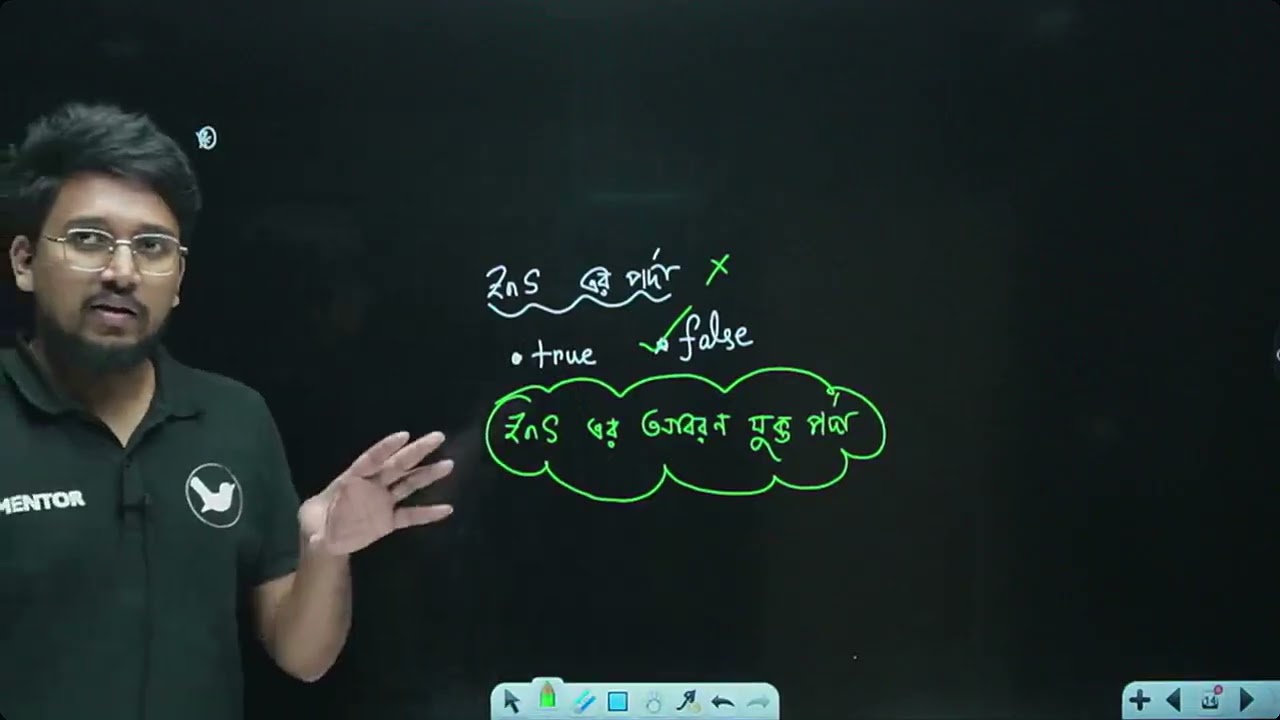 ZnS এর পর্দা ×
• true ✓• false
ZnS এর আবরণ যুক্ত পর্দা
MENTOR
14